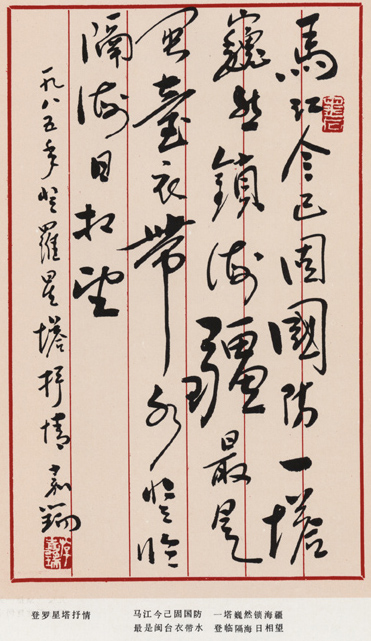 馬江今已固國防一塔
巍然鎖海疆最是
閩臺衣帶水登臨
隔海日相望
一九八五年登羅星塔抒情
登罗星塔抒情
马江今己固国防 一塔巍然锁海疆
最是闽台衣带水 登临隔海日相望